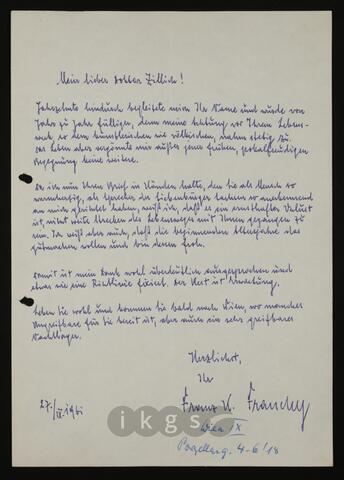 Mein lieber Doktor Zillich!
Jahrzehnte hindurch begleitete mich Ihr Name und wurde von
Jahr zu Jahr fülliger, denn meine Achtung vor Ihrem Lebens-
werk, so dem künstlerischen wie völkischen, nahm stetig zu.
Das Leben aber vergönnte mir außer jener frühen, pokalfreudigen
Begegnung keine weitere.
Da ich nun Ihren Brief in Händen halte, den Sie als Mensch so
warmherzig, als Sprecher der Siebenbürger Sachsen so anerkennend
an mich gerichtet haben, weiß ich, daß es ein ernsthafter Verlust
ist, nicht weite Strecken des Lebensweges mit Ihnen gegangen zu
sein. Ich weiß aber auch, daß die beginnenden Altersjahre das
gutmachen wollen und bin dessen froh.
Somit ist mein Dank wohl überdeutlich ausgesprochen und
etwas wie eine Richtlinie fixiert. Der Rest ist Erwartung.
Leben Sie wohl und kommen Sie bald nach Wien, wo mancher
Ungreifbare für Sie bereit ist, aber auch ein sehr greifbarer
Herzlichst,
Ihr
Franz K. Franchy
Wien X
4-6/18
ikgs